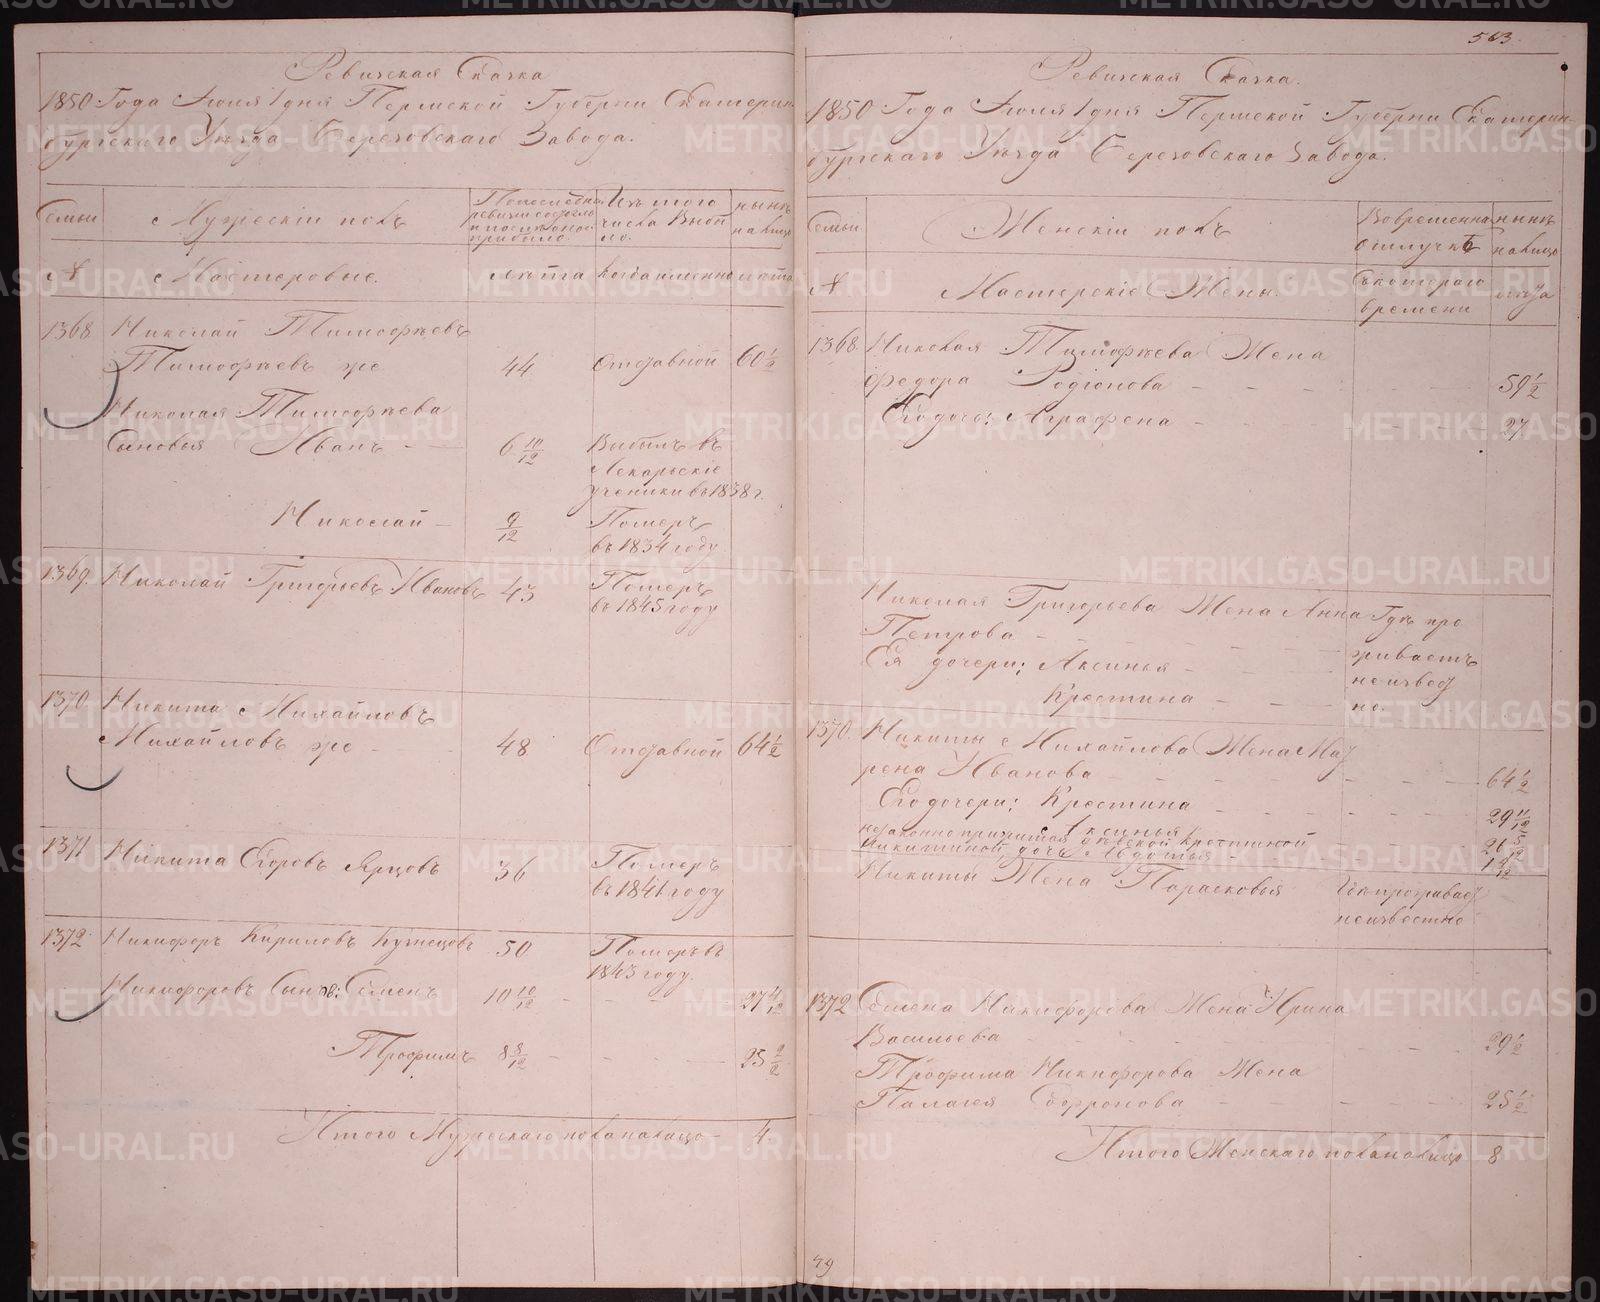 Ревизская Сказка
1850 Года Июля 1 дня Пермской Губерни Екатерин-
бургскаго Уезда Березовскаго Завода.
Семьи
Мужескiй полъ
Изъ того
числа выбы
ло.
нынѣ
налицо
№
Мастеровые.
лѣта
когда именно
лѣта
1368
Николай Тимофѣевъ
Тимофѣевъ же
44
Отставной
60 1/2
Николая Тимофѣева
Сыновья Иванъ
6 10/12
Выбылъ въ
Лекарьскiе
ученики въ 1838 г.
Николай
9/12
Померъ
въ 1834 году
1369
Николай Григорьевъ Ивановъ
43
Померъ
въ 1845 году
1370
Никита Михайловъ
Михайловъ же
48
Отставной
64 1/2
1371
Никита Егоровъ Ярцовъ
36
Померъ
въ 1841 году
1372
Никифоръ Кириловъ Кузнецовъ
50
Померъ въ
1843 году.
Никифоровъ Сынов: Семенъ
10 10/12
27 4/12
Трофимъ
8 8/12
25 2/2
Итого Мужескаго пола налицо
4.
563.
Ревизская Сказка.
1850 Года Июля 1 дня Пермской Губерни Екатерин-
бургскаго Уезда Березовскаго Завода.
Семьи
Женскiй полъ
Во временной
отлучкѣ
нынѣ
налицо
№
Мастерскiе Жены.
съ котораго
времени
лѣта
1368
Николая Тимофѣева Жена
Федора Родiонова
59 1/2
Его дочь: Аграфена
27
Николая Григорьева Жена Анна
Петрова
Ея дочери: Аксинья
Крестина
Гдѣ про
живаетъ
неизвест
но.
1370.
Никиты Михайлова Жена Мат
рена Иванова
64 1/2
Его дочери: Крестина
29 11/12
Аксинья
26 5/12
незаконно прижитая девской Крестиной
Никитиной дочь Авдотья
Никиты Жена Парасковья
Гдѣ проживает
неизвестно
1372
Семена Никифорова Жена Ирина
Васильева
29 1/2
Трофима Никифорова Жена
Палагея Софронова
25 1/2
Итого Женскаго пола налицо
8
49
METRIKI.GASO-URAL.RU